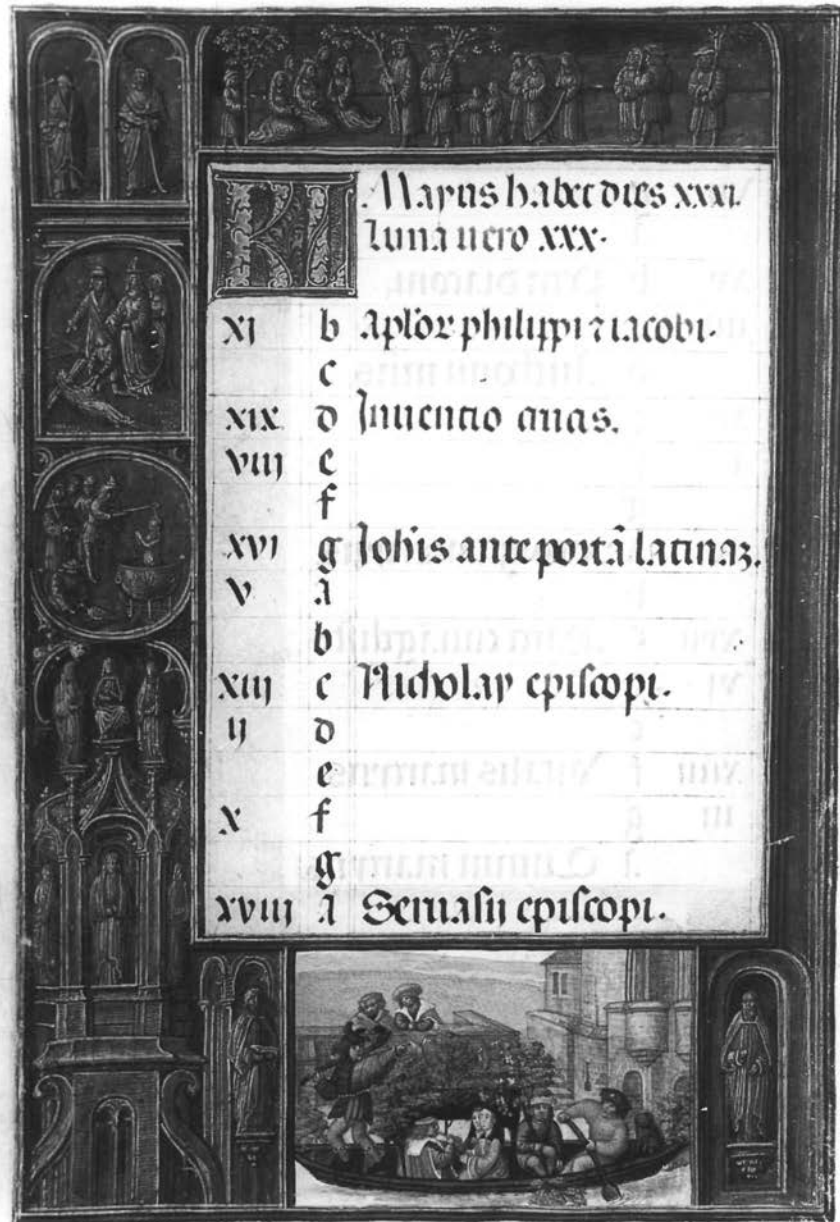 KL Mayus habet dies xxxi.
Luna uero xxx.
xi b Aplor philippi ⁊ iacobi.
c
xix d Inuentio crucis.
viii e
f
xvi g Johis ante portā latinaz.
v a
b
xiii c Nicholay episcopi.
ii d
e
x f
g
xviii a Seruasii episcopi.